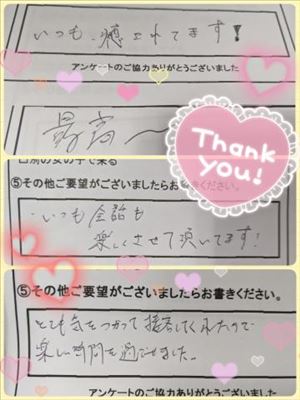 いつも癒されてます!
アンケートのご協力ありがとうございました
最高〜
Thank
you!
⑤その他ご要望がございましたらお書きください。
いつも会話も
楽しくさせて頂いてます!
⑤その他ご要望がございましたらお書きください。
とても気をつかって接客してくれたので
楽しい時間を過ごせました。
アンケートのご協力ありがとうございました